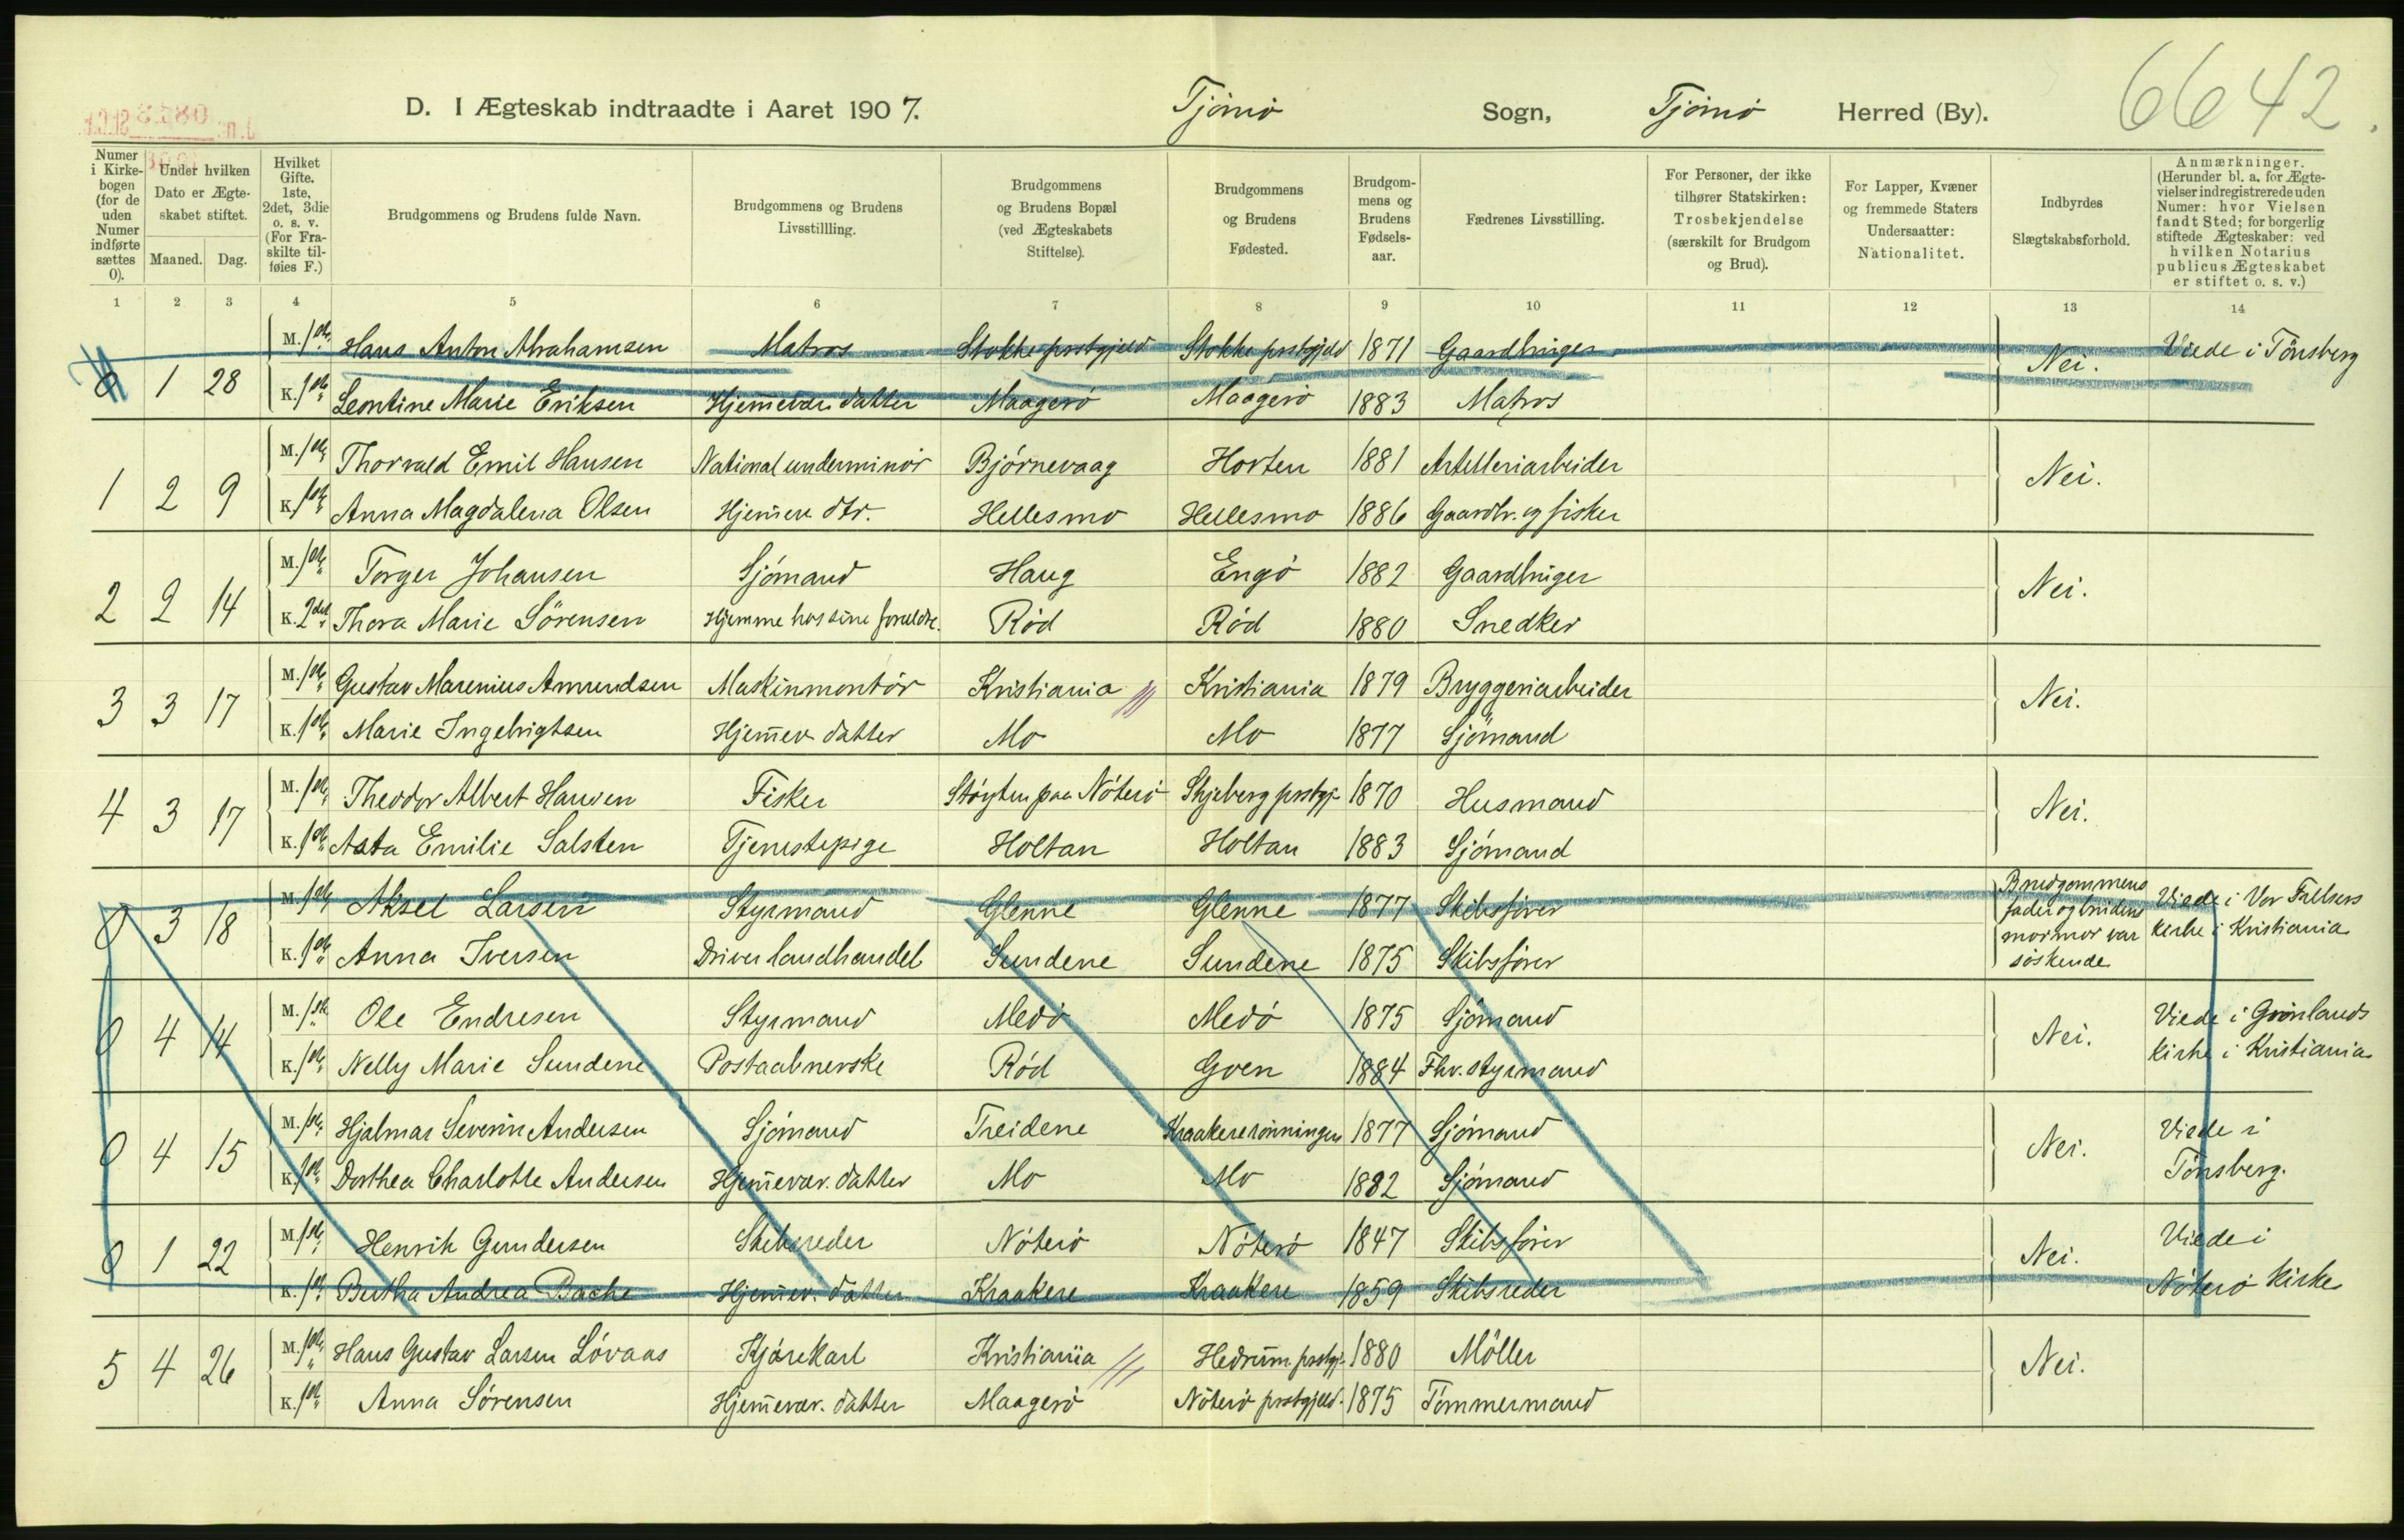 D. I Ægteskab indtraadte i Aaret 1907. Tjömö Sogn, Tjömö Herred (By). 6642.
Numer i Kirkebogen (for de uden Numer indførte sættes 0).
Under hvilken Dato er Ægteskabet stiftet.
Maaned. Dag.
Hvilket Gifte. 1ste, 2det, 3die o. s. v. (For Fraskilte tilføies F.)
Brudgommens og Brudens fulde Navn.
Brudgommens og Brudens Livsstillling.
Brudgommens og Brudens Bopæl (ved Ægteskabets Stiftelse).
Brudgommens og Brudens Fødested.
Brudgommens og Brudens Fødselsaar.
Fædrenes Livsstilling.
For Personer, der ikke tilhører Statskirken: Trosbekjendelse (særskilt for Brudgom og Brud).
For Lapper, Kvæner og fremmede Staters Undersaatter: Nationalitet.
Indbyrdes Slægtskabsforhold.
Anmærkninger. (Herunder bl. a. for Ægtevielser indregistrerede uden Numer: hvor Vielsen fandt Sted; for borgerlig stiftede Ægteskaber: ved hvilken Notarius publicus Ægteskabet er stiftet o. s. v.)
1 2 3 4 5 6 7 8 9 10 11 12 13 14
0 1 28 M. 1ste Hans Anton Abrahamsen Matros Stokke prstgjeld Stokke prstgjeld 1871 Gaardbruger Nei. Viede i Tönsberg
K. 1ste Leontine Marie Eriksen Hjemmevær. datter Maagerö Maagerö 1883 Matros
1 2 9 M. 1ste Thorvald Emil Hansen National underminör Björnevaag Horten 1881 Artilleriarbeider Nei.
K. 1ste Anna Magdalena Olsen Hjemmev. dtr. Hellesmo Hellesmo 1886 Gaardbr. og fisker
2 2 14 M. 1ste Torger Johansen Sjömand Haug Engö 1882 Gaardbruger Nei.
K. 2det Thora Marie Sörensen Hjemme hos sine foreldre. Röd Röd 1880 Snedker
3 3 17 M. 1ste Gustav Marenius Amundsen Maskinmontör Kristiania Kristiania 1879 Bryggeriarbeider Nei.
K. 1ste Marie Ingebrigtsen Hjemmev. datter Mo Mo 1877 Sjömand
4 3 17 M. 1ste Theodor Albert Hansen Fisker Stöyten paa Nöterö Skjeberg prstgj. 1870 Husmand Nei.
K. 1ste Asta Emilie Salsten Tjenestepige Holtan Holtan 1883 Sjömand
0 3 18 M. 1ste Aksel Larsen Styrmand Glenne Glenne 1877 Skibsförer Brudgommens fader og brudens mormor var söskende Viede i Vor Frelsers kirke i Kristiania
K. 1ste Anna Iversen Driver landhandel Sundene Sundene 1875 Skibsförer
0 4 14 M. 1ste Ole Endresen Styrmand Medö Medö 1875 Sjömand Nei. Viede i Grönlands kirke i Kristiania
K. 1ste Nelly Marie Sundene Postaabnerske Röd Gren 1884 Fhv. styrmand
0 4 15 M. 1ste Hjalmar Severin Andersen Sjömand Treidene Kraakererönningen 1877 Sjömand Nei. Viede i Tönsberg.
K. 1ste Dorthea Charlotte Andersen Hjemmevær. datter Mo Mo 1882 Sjömand
0 1 22 M. 1ste Henrik Gundersen Skibsreder Nöterö Nöterö 1847 Skibsförer Nei. Viede i Nöterö kirke
K. 1ste Bertha Andrea Bache Hjemmev. datter Kraakere Kraakere 1859 Skibsreder
5 4 26 M. 1ste Hans Gustav Larsen Lövaas Kjörekarl Kristiania Hedrum prstgj. 1880 Möller Nei.
K. 1ste Anna Sörensen Hjemmevær. datter Maagerö Nöterö prstgjeld. 1875 Tömmermand